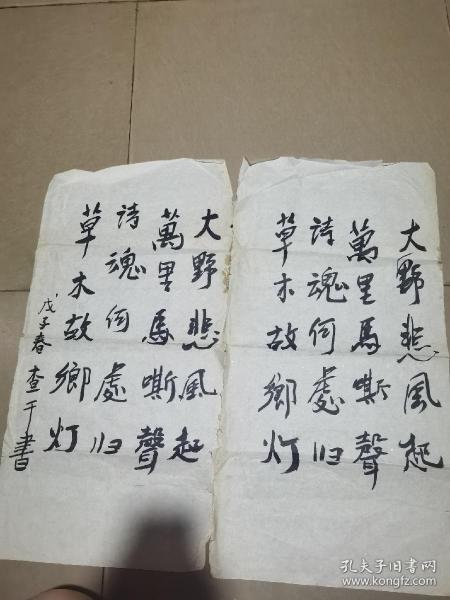 大野悲風起
萬里馬嘶聲
詩魂何處归
草木故鄉灯
大野悲風起
萬里馬嘶聲
詩魂何處归
草木故鄉灯
戊子春查干書
孔夫子旧书网
www.kongfz.com